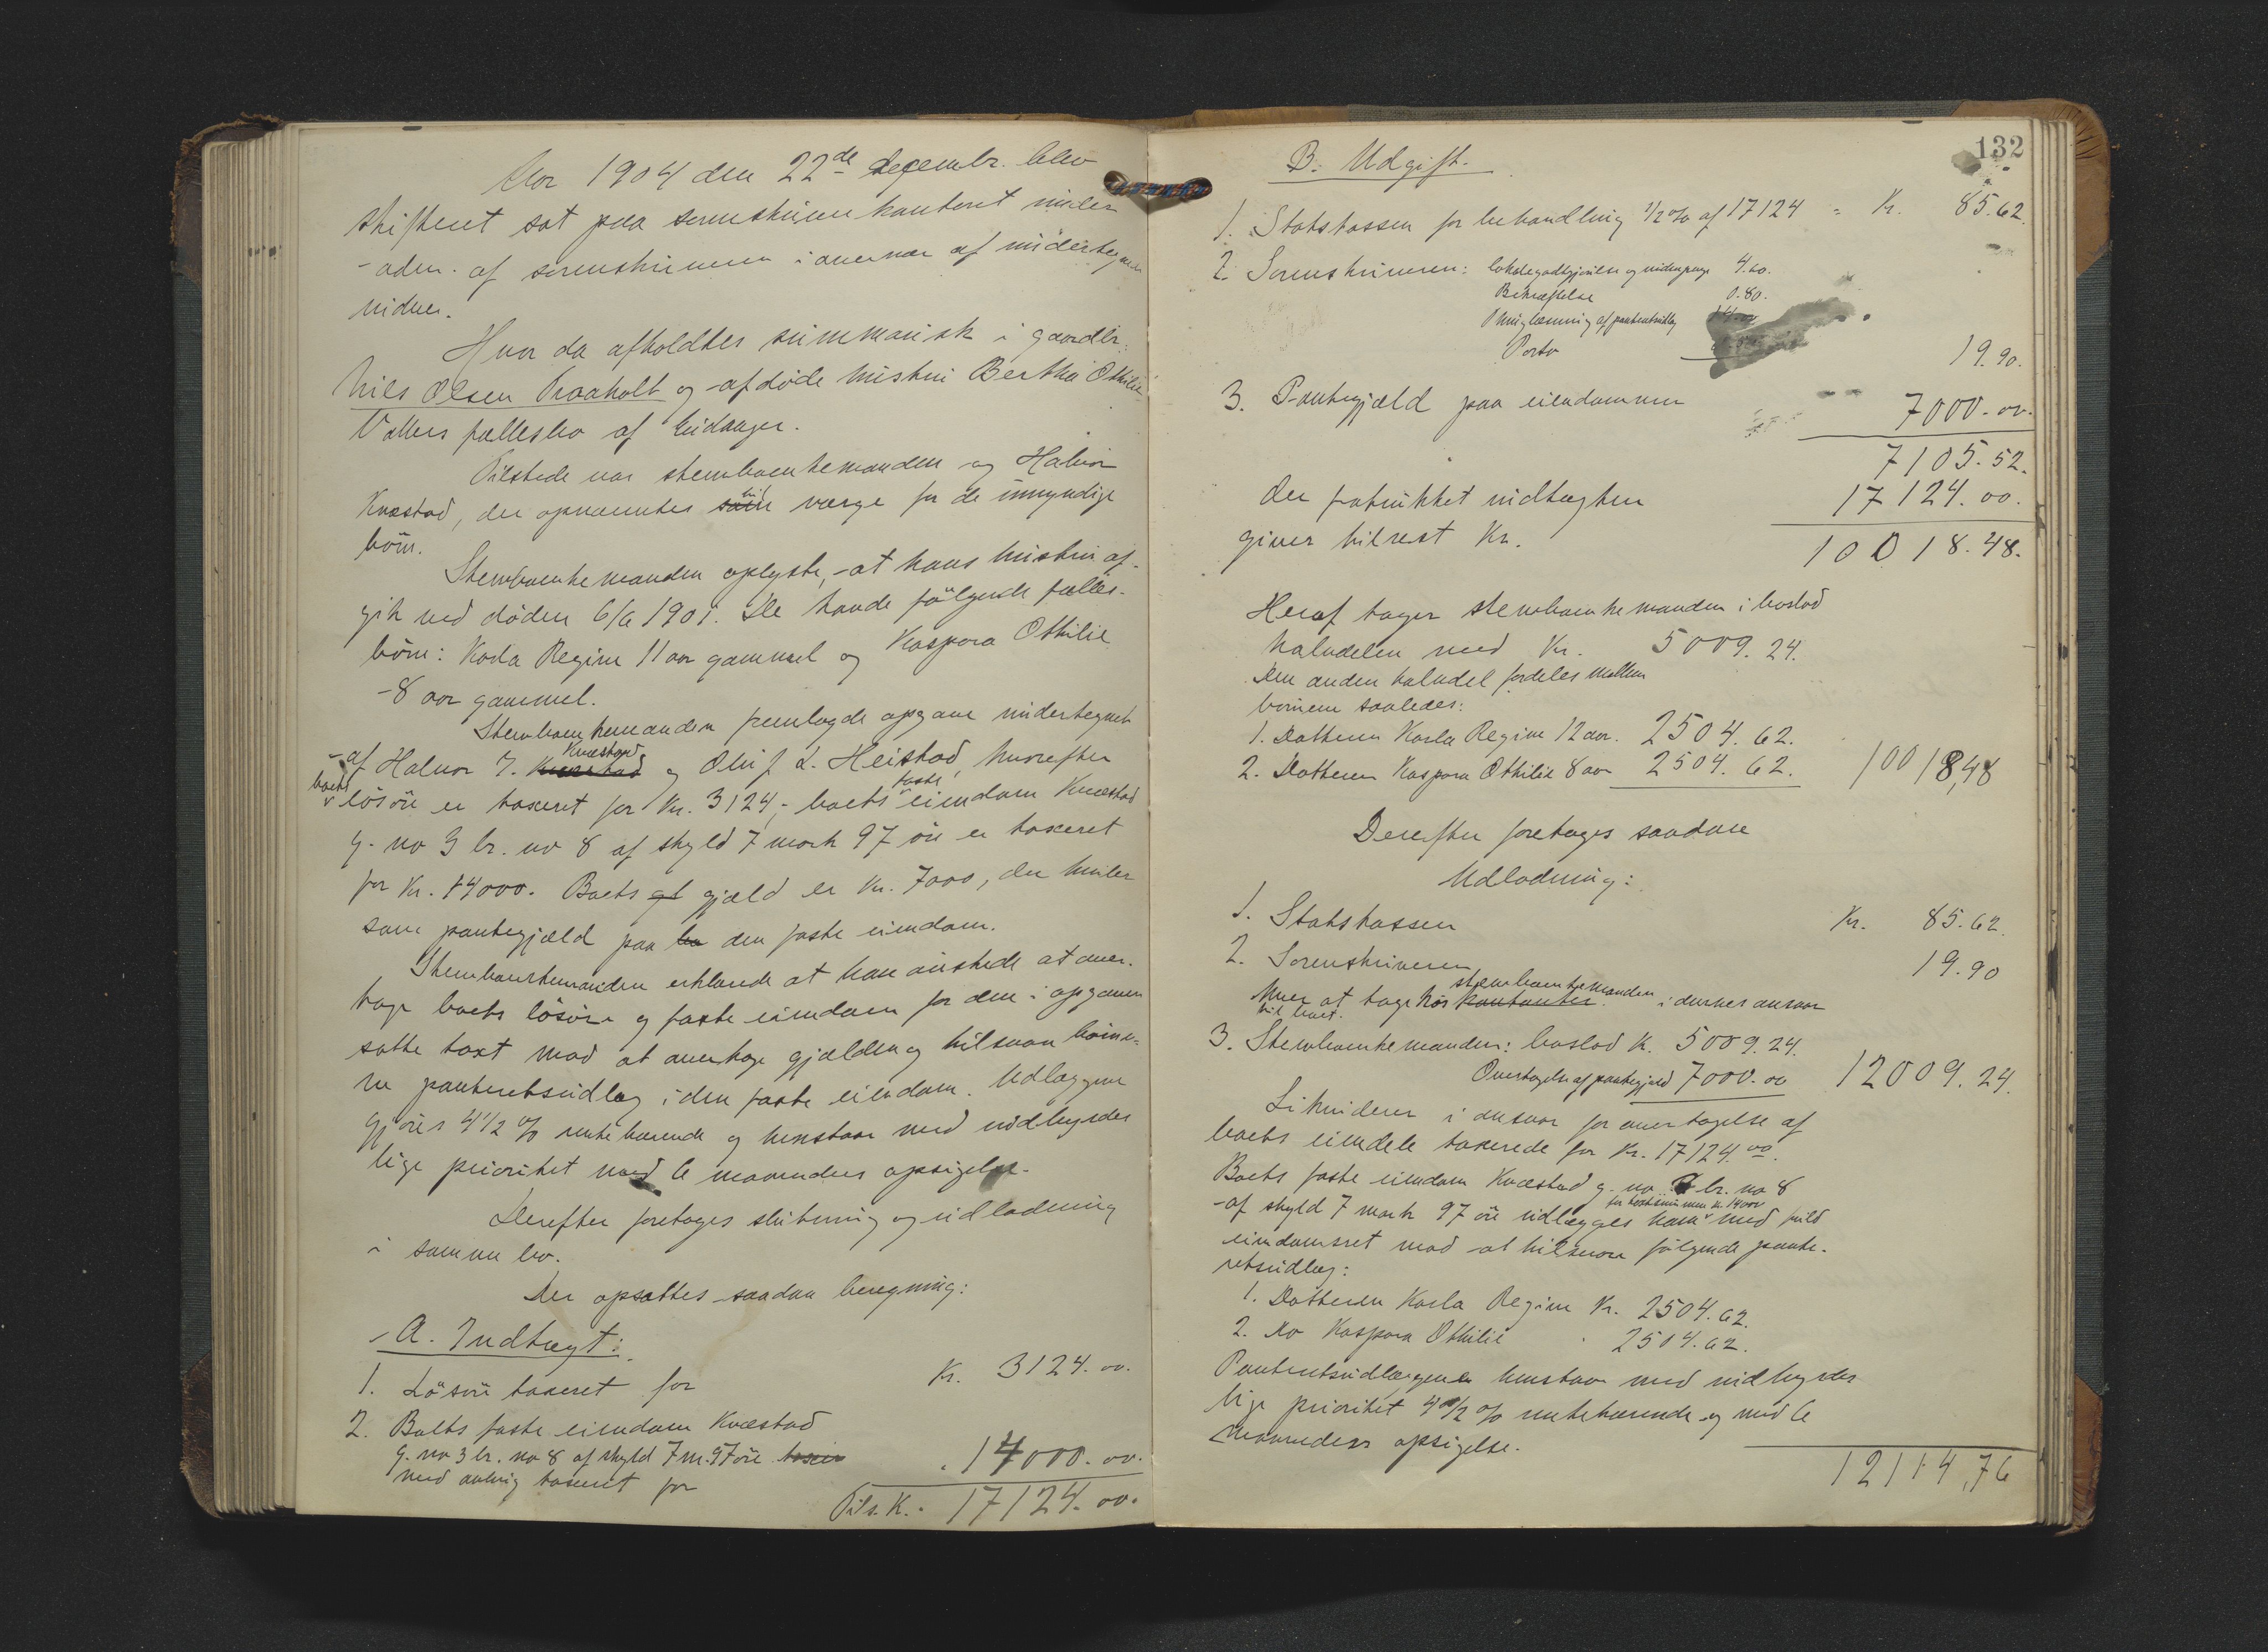 Aar 1904 den 22de decembr. blev
skifteret sat paa sorenskriverkontoret under
-adm. af sorenskriveren i overvær af undertegnede
vidner.
Hvor da afholdtes summarisk i gaardbr.
Nils Olsen Traaholt og afdøde hustru Bertha Othilie
Valters fællesbo af Eidanger.
Tilstede var stervboenkemanden og Halvor
Kvæstad, der opnævntes som til værge for de umyndige
børn.
Stervboenkemanden oplyste, at hans hustru af-
gik ved døden 6/6 1901. De havde følgende fælles-
børn: Karla Regine 11 aar gammel og Kaspara Othilie
8 aar gammel.
Stervboenkemanden fremlagde opgave undertegnet
af Halvor J. Kvæstad og Oluf L. Heistad, hvorefter
boets løsøre er taxeret for Kr. 3124,- boets faste eiendom Kvæstad
g. no 3 br. no 8 af skyld 7 mark 97 øre er taxeret
for Kr. 14000. Boets gjæld er Kr. 7000, der hviler
som pantegjæld paa den faste eiendom.
Stervboenkemanden erklærede at han ønskede at over-
tage boets løsøre og faste eiendom for den i opgaven
satte taxt mod at overtage gjælden og tilsvare børne-
ne panteretsudlæg i den faste eiendom. Udlæggene
gjøres 4 1/2 % rentebærende og henstaar med indbyrdes
lige prioritet med 6 maaneders opsigelse.
Derefter foretages slutning og udlodning
i samme bo.
Der opsattes saadan beregning:
A. Indtægt:
1. Løsøre taxeret for Kr. 3124.00.
2. Boets faste eiendom Kvæstad
g. no 3 br. no 8 af skyld 7 m. 97 øre
med avling taxeret for 14000.00.
Tils. K. 17124.00.
132
B. Udgift.
1. Statskassen for behandling 1/2 % af 17124 = Kr. 85.62.
2. Sorenskriveren: lokalegodtgjørelse og vidnepenge 4.60.
Bekræftelse 0.80.
Thinglæsning af panteretsudlæg 14.00
Porto
19.90.
3. Pantegjæld paa eiendommen 7000.00.
7105.52.
der fratrukket indtægten 17124.00.
giver tilrest Kr. 10018.48.
Heraf tager stervboenkemanden i boslod
halvdelen med Kr. 5009.24.
Den anden halvdel fordeles mellem
børnene saaledes:
1. Datteren Karla Regine 12 aar. 2504.62.
2. Datteren Kaspara Othilie 8 aar 2504.62. 10018,48
Derefter foretages saadan
Udlodning:
1. Statskassen Kr. 85.62.
2. Sorenskriveren 19.90
hver at tage hos kontanter stervboenkemanden i dennes ansvar
til boet.
3. Stervboenkemanden: boslod K. 5009.24.
Overtagelse af pantegjæld 7000.00 12009.24.
Likviderer i ansvar for overtagelse af
boets eiendele taxerede for Kr. 17124.00.
Boets faste eiendom Kvæstad g. no 3 br. no 8
af skyld 7 mark 97 øre udlægges ham for taxtsummen K. 14000 med fuld
eiendomsret mod at tilsvare følgende pante-
retsudlæg:
1. Datteren Karla Regine Kr. 2504.62.
2. Do Kaspara Othilie 2504.62.
Panteretsudlæggene henstaar med indbyrdes
lige prioritet 4 1/2 % rentebærende og med 6
maaneders opsigelse.
12114,76